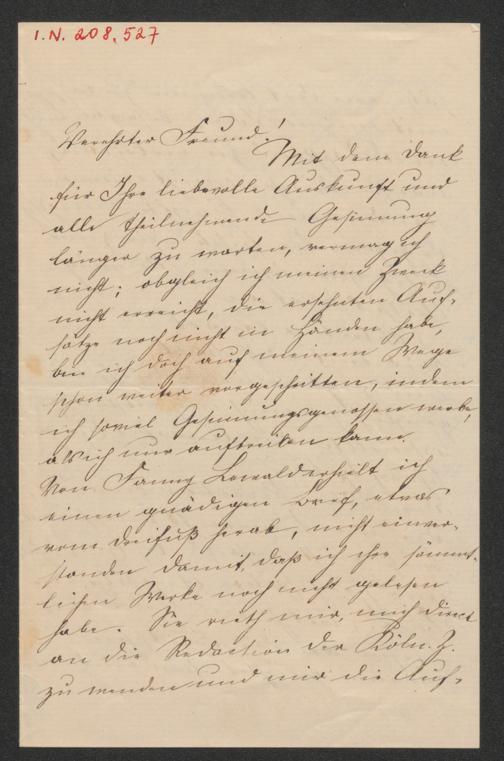 I. N. 208.527
Verehrter Freund!
Mit dem Dank
für Ihre liebevolle Auskunft und
alle theilnehmende Gesinnung
länger zu warten, vermag ich
nicht; obgleich ich meinen Zweck
nicht erreicht, die ersehnten Auf-
sätze noch nicht in Händen habe,
bin ich doch auf meinem Wege
schon weiter vorgeschritten, indem
ich soviel Gesinnungsgenossen werbe,
als ich nur auftreiben kann.
Von Fanny Lewald erhielt ich
einen gnädigen Brief, etwas
vom Dreifuß herab, nicht einver-
standen damit, daß ich ihre sämmt-
lichen Werke noch nicht gelesen
habe. Sie rieth mir, mich direct
an die Redaction der Köln. Z.
zu wenden und mir die Auf-